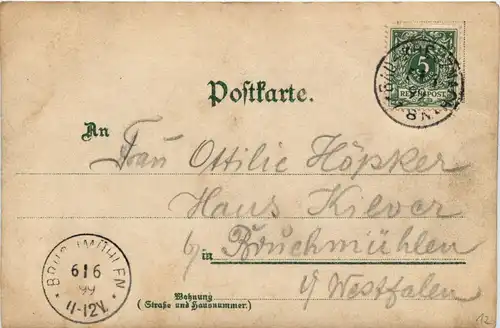 5
REICHSPOST
Postkarte.
An
Frau Ottilie Höpker
Haus Kilver
b/ in Bruchmühlen
i/ Westfalen
BRUCHMÜHLEN
6/6
99
11-12V.
Wohnung
(Straße und Hausnummer.)
12